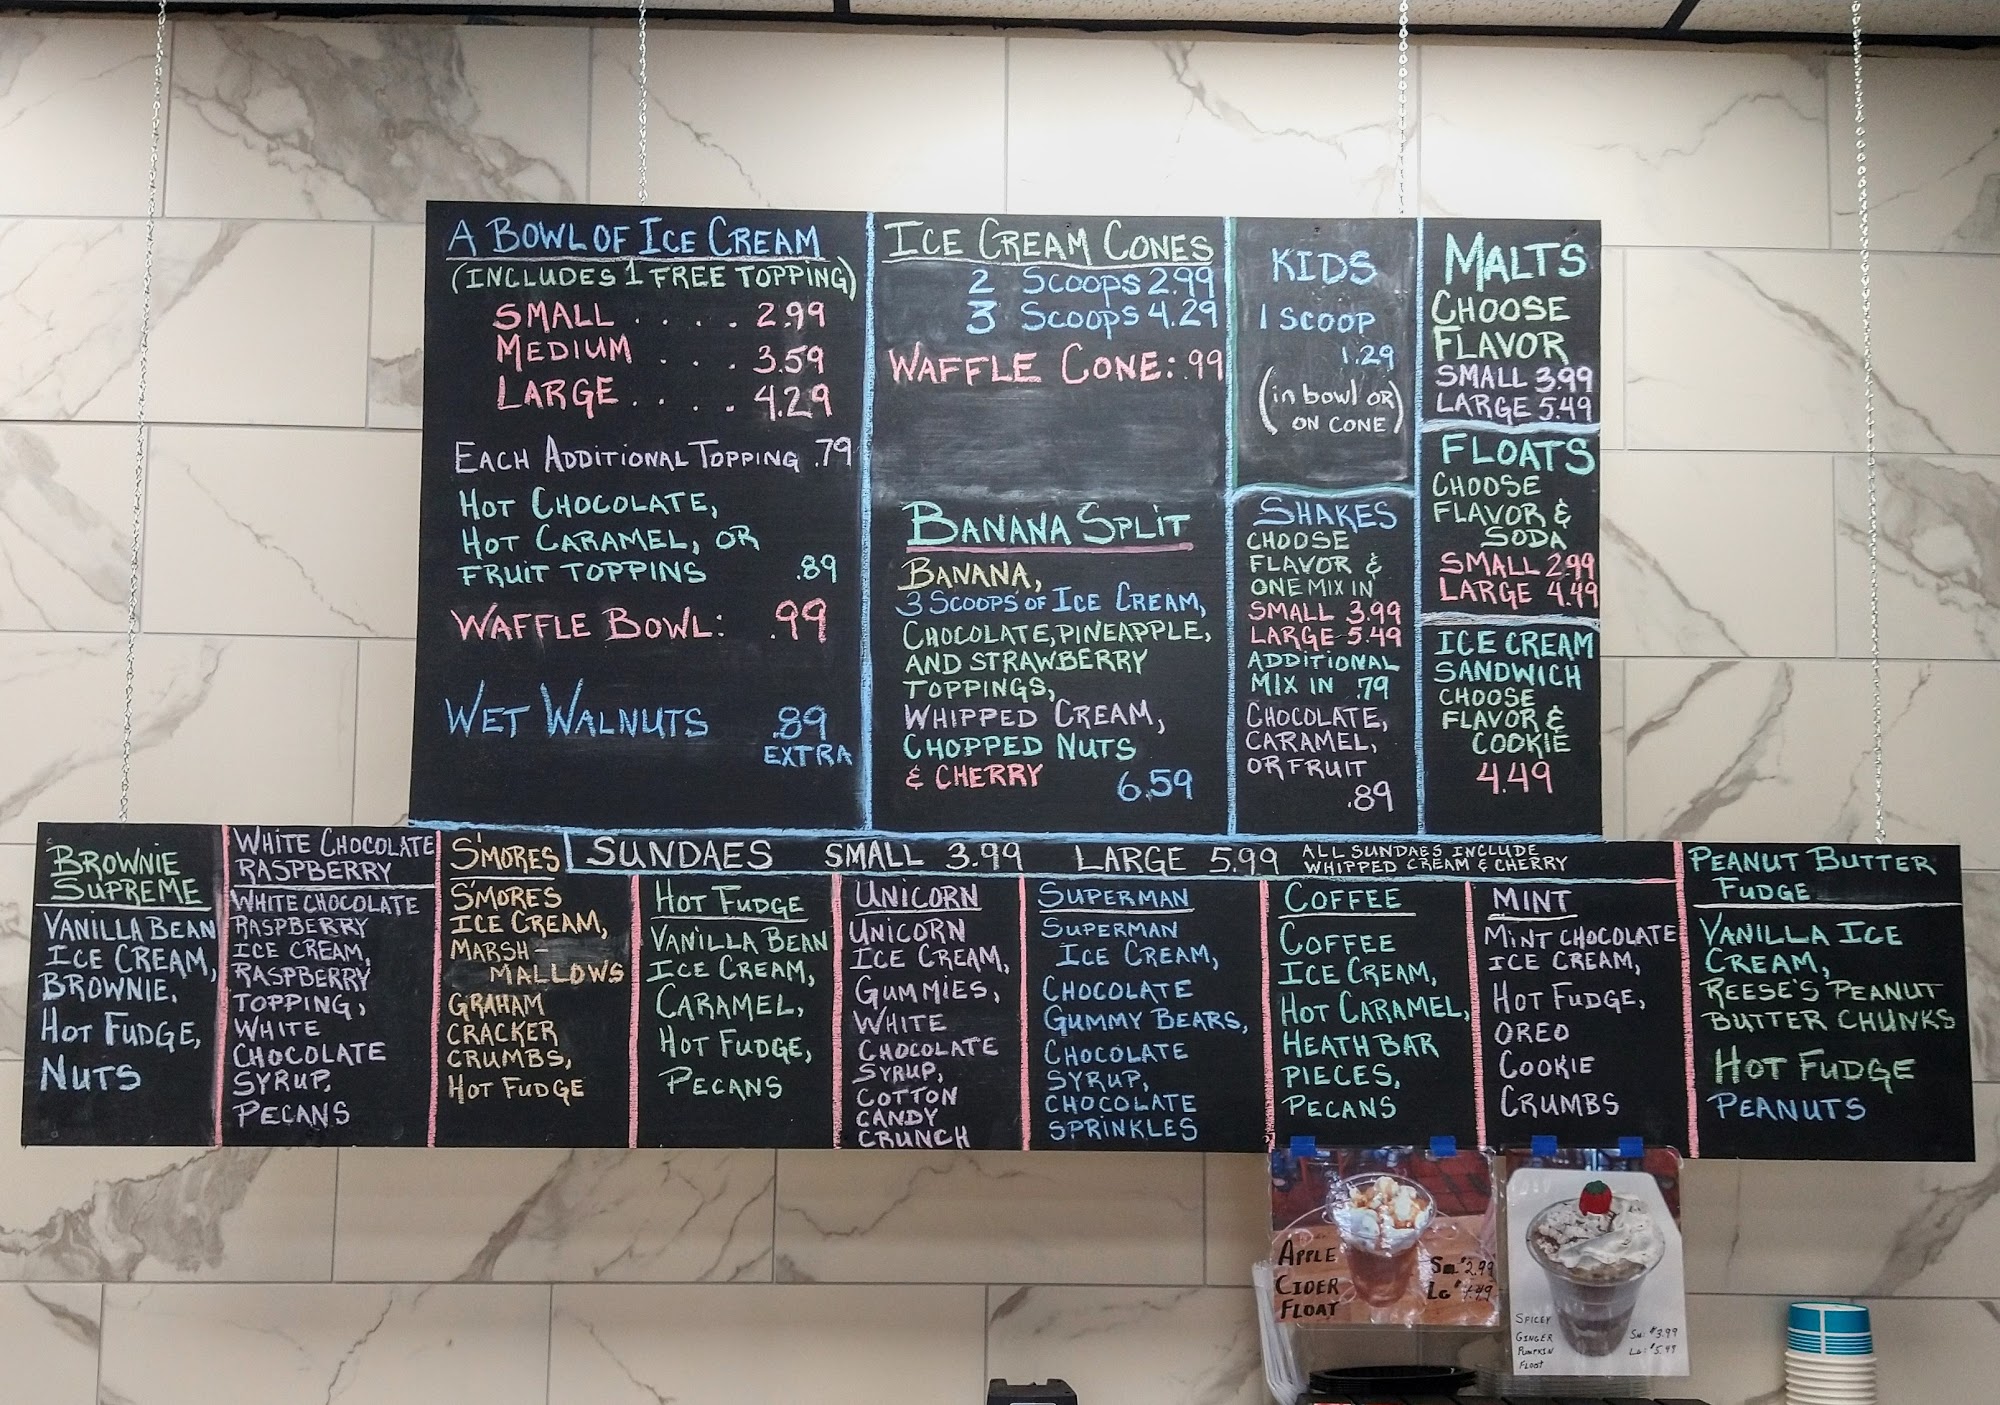 A BOWL OF ICE CREAM
(INCLUDES 1 FREE TOPPING)
SMALL . . . . 2.99
MEDIUM . . . 3.59
LARGE . . . . 4.29
EACH ADDITIONAL TOPPING .79
HOT CHOCOLATE,
HOT CARAMEL, OR
FRUIT TOPPINS .89
WAFFLE BOWL: .99
WET WALNUTS .89
EXTRA
ICE CREAM CONES
2 SCOOPS 2.99
3 SCOOPS 4.29
WAFFLE CONE: .99
BANANA SPLIT
BANANA,
3 SCOOPS OF ICE CREAM,
CHOCOLATE, PINEAPPLE,
AND STRAWBERRY
TOPPINGS,
WHIPPED CREAM,
CHOPPED NUTS
& CHERRY 6.59
KIDS
1 SCOOP
1.29
(in bowl OR
ON CONE)
SHAKES
CHOOSE
FLAVOR &
ONE MIX IN
SMALL 3.99
LARGE 5.49
ADDITIONAL
MIX IN .79
CHOCOLATE,
CARAMEL,
OR FRUIT
.89
MALTS
CHOOSE
FLAVOR
SMALL 3.99
LARGE 5.49
FLOATS
CHOOSE
FLAVOR &
SODA
SMALL 2.99
LARGE 4.49
ICE CREAM
SANDWICH
CHOOSE
FLAVOR &
COOKIE
4.49
SUNDAES SMALL 3.99 LARGE 5.99
ALL SUNDAES INCLUDE
WHIPPED CREAM & CHERRY
BROWNIE
SUPREME
VANILLA BEAN
ICE CREAM,
BROWNIE,
HOT FUDGE,
NUTS
WHITE CHOCOLATE
RASPBERRY
WHITE CHOCOLATE
RASPBERRY
ICE CREAM,
RASPBERRY
TOPPING,
WHITE
CHOCOLATE
SYRUP,
PECANS
S'MORES
S'MORES
ICE CREAM,
MARSH-
MALLOWS
GRAHAM
CRACKER
CRUMBS,
HOT FUDGE
HOT FUDGE
VANILLA BEAN
ICE CREAM,
CARAMEL,
HOT FUDGE,
PECANS
UNICORN
UNICORN
ICE CREAM,
GUMMIES,
WHITE
CHOCOLATE
SYRUP,
COTTON
CANDY
CRUNCH
SUPERMAN
SUPERMAN
ICE CREAM,
CHOCOLATE
GUMMY BEARS,
CHOCOLATE
SYRUP,
CHOCOLATE
SPRINKLES
COFFEE
COFFEE
ICE CREAM,
HOT CARAMEL,
HEATH BAR
PIECES,
PECANS
MINT
MINT CHOCOLATE
ICE CREAM,
HOT FUDGE,
OREO
COOKIE
CRUMBS
PEANUT BUTTER
FUDGE
VANILLA ICE
CREAM,
REESE'S PEANUT
BUTTER CHUNKS
HOT FUDGE
PEANUTS
APPLE
CIDER
FLOAT
Sm $2.99
LG $4.49
SPICEY
GINGER
PUMPKIN
FLOAT
Sm: $3.99
LG: $5.49